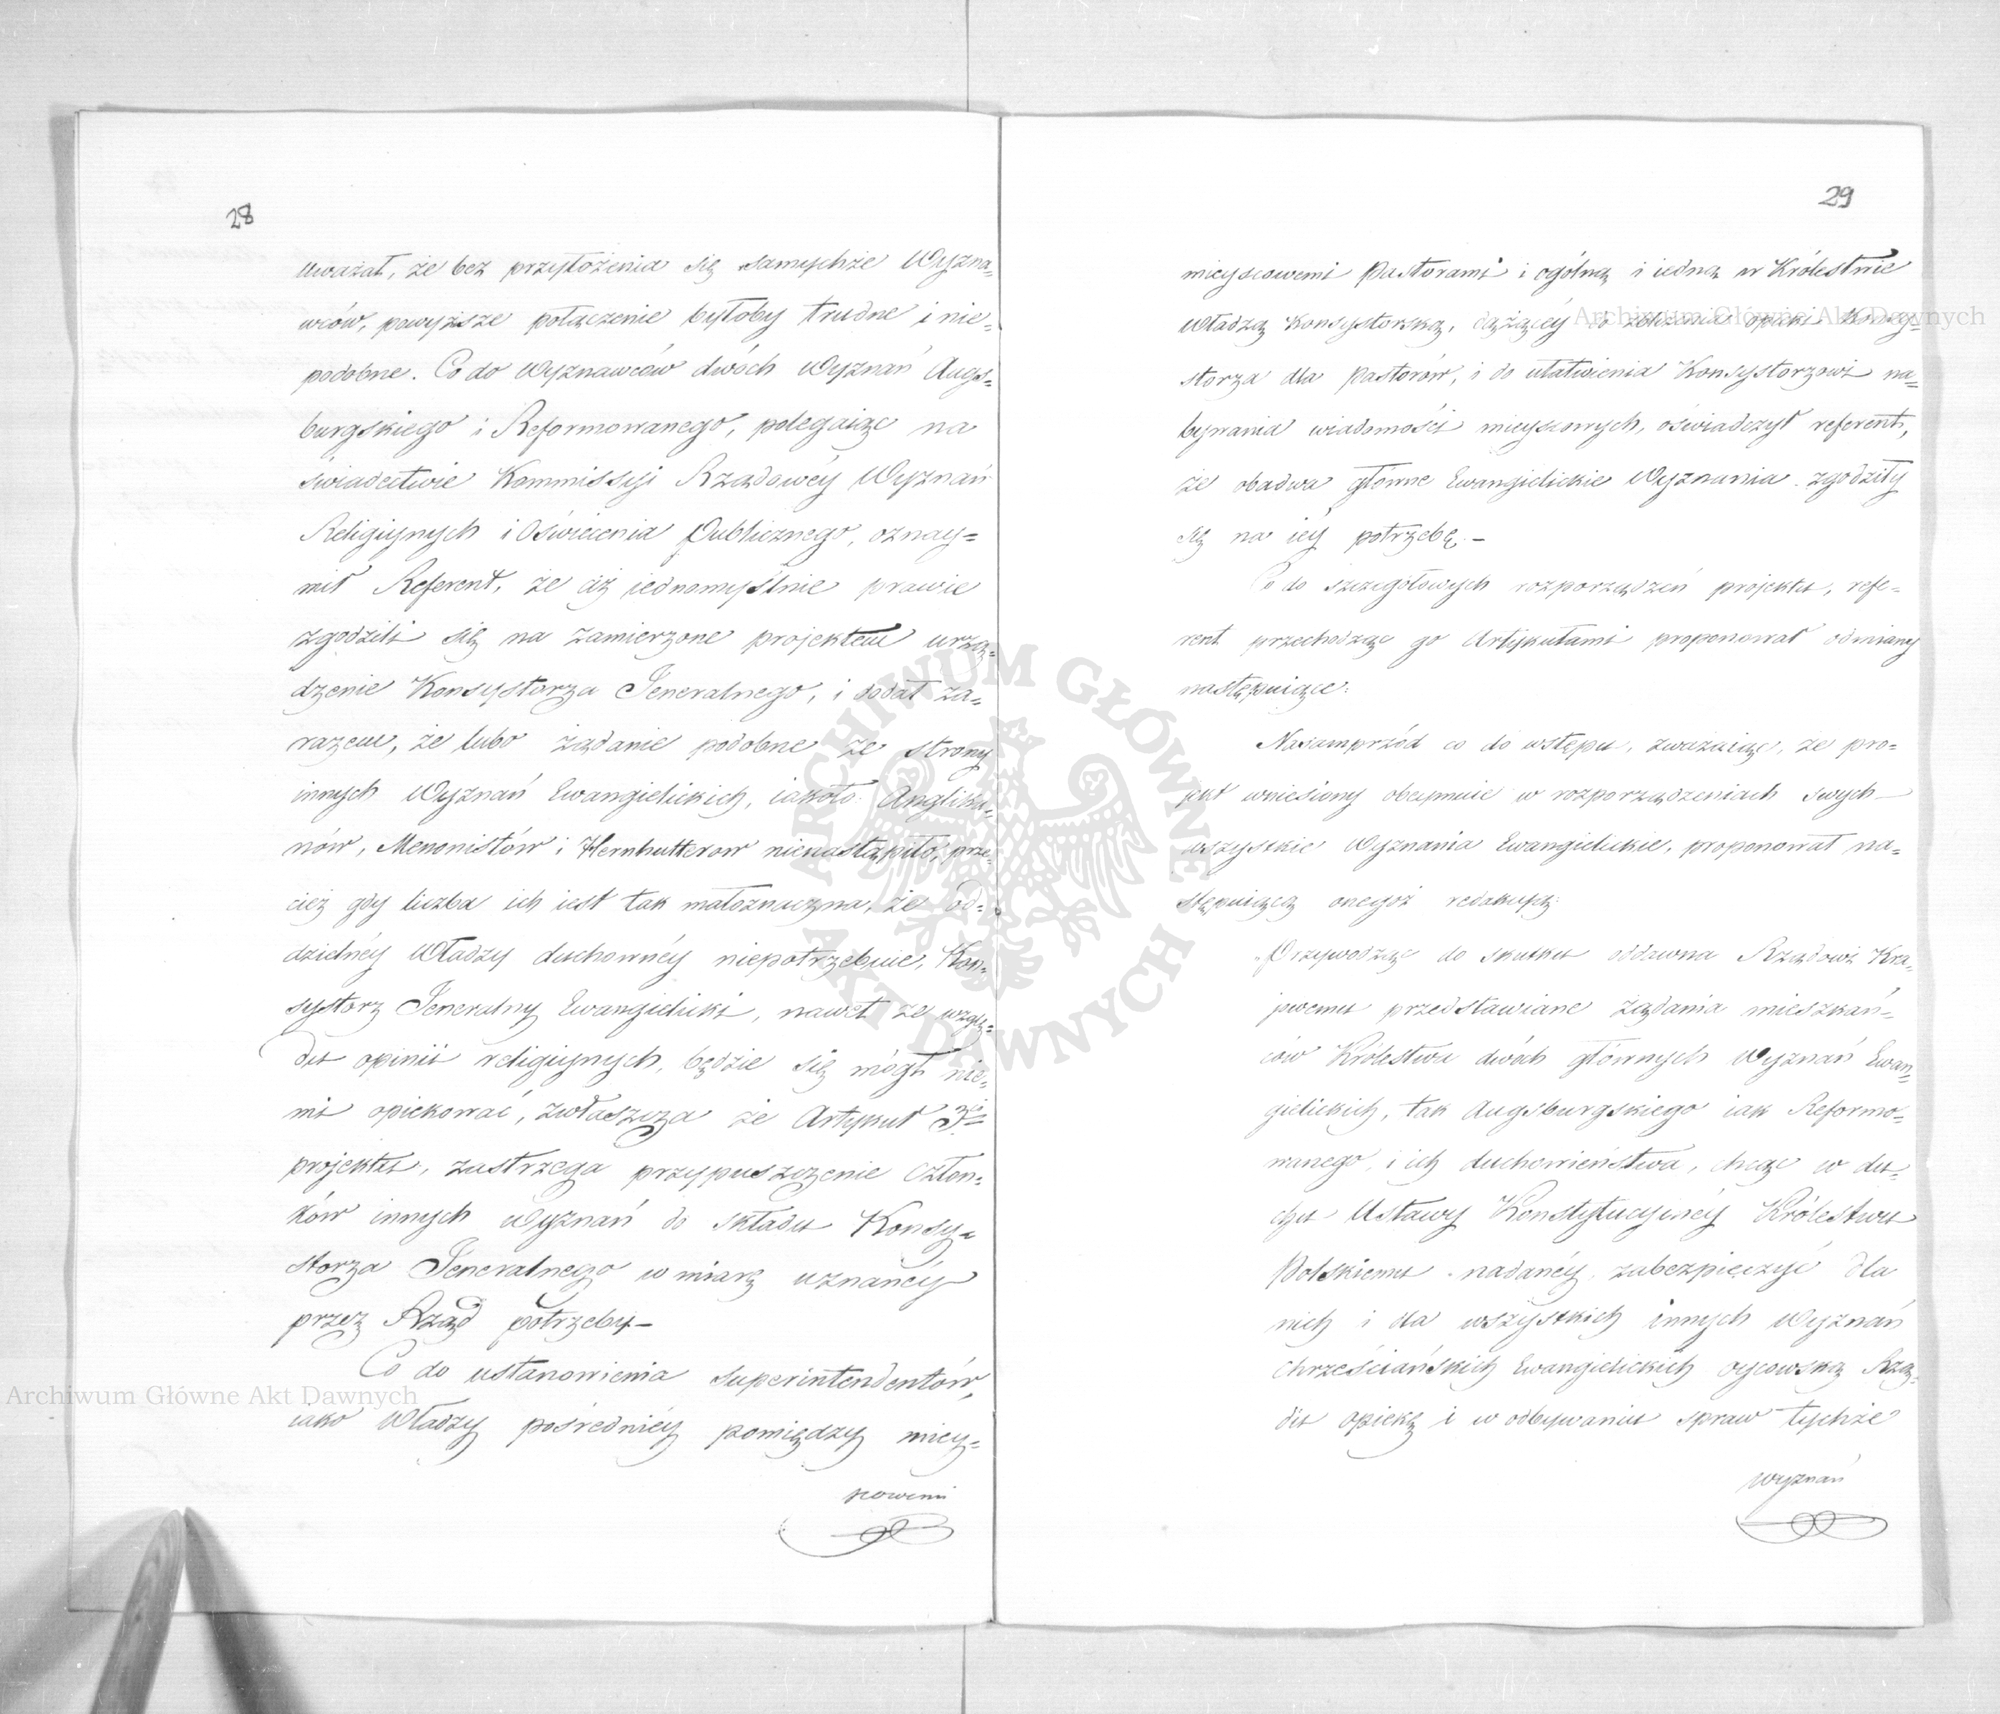 28
uważał, że bez przyłożenia się samychże Wyzna=
wców, powyższe połączenie byłoby trudne i nie=
podobne. Co do Wyznawców dwóch Wyznań Augs=
burgskiego i Reformowanego, polegaiąc na
świadectwie Kommissyi Rządowéy Wyznań
Religiynych i Oświecenia Publicznego, oznay=
mił Referent, że ciż iednomyślnie prawie
zgodzili się na zamierzone projektem urzą=
dzenie Konsystorza Jeneralnego, i dodał za=
razem, że lubo żądanie podobne ze strony
innych Wyznań Ewangielickich, iakoto: Anglika=
nów, Menonistów i Hernhutterow nienastąpiło, prze=
cież gdy liczba ich iest tak małoznaczna, że od=
dzielnéy Władzy duchownéy niepotrzebuie, Kon=
systorz Jeneralny Ewangielicki, nawet ze wzglę=
du opinii religiynych, będzie się mógł nie=
mi opiekować, zwłaszcza że Artykuł 3ci
projektu, zastrzega przypuszczenie Człon=
ków innych Wyznań do składu Konsy=
storza Jeneralnego w miarę uznanéy
przez Rząd potrzeby_
Co do ustanowienia Superintendentów,
iako Władzy pośrednićy pomiędzy miey=
scowemi
29
mieyscowemi Pastorami i ogólną i iedną w Królestwie
Władzą Konsystorską, dążącéy do zbliżenia opieki Konsy=
storza dla Pastorów, i do ułatwienia Konsystorzowi na=
bywania wiadomości mieyscowych, oświadczył referent,
że obadwa główne Ewangielickie Wyznania zgodziły
się na iéy potrzebę._
Co do szczegółowych rozporządzeń projektu, refe=
rent przechodząc go Artykułami proponował odmiany
następuiące:
Nasamprzód co do wstępu, zważaiąc, że pro=
jekt wniesiony obeymuie w rozporządzeniach swych
wszystkie Wyznania Ewangielickie, proponował na=
stępuiącą onegoż redakcyą:
"Przywodząc do skutku oddawna Rządowi Kra=
jowemu przedstawiane żądania mieszkań=
ców Królestwa dwóch głównych Wyznań Ewan=
gielickich, tak Augsburgskiego iak Reformo=
wanego, i ich duchowieństwa, chcąc w du=
chu Ustawy Konstytucyinéy Królestwu
Polskiemu nadanéy, zabezpieczyć dla
nich i dla wszystkich innych Wyznań
Chrześciańskich Ewangielickich oycowską Rzą=
du opiekę i w odbywaniu spraw tychże
Wyznań
Archiwum Główne Akt Dawnych
Archiwum Główne Akt Dawnych
ARCHIWUM GŁÓWNE AKT DAWNYCH